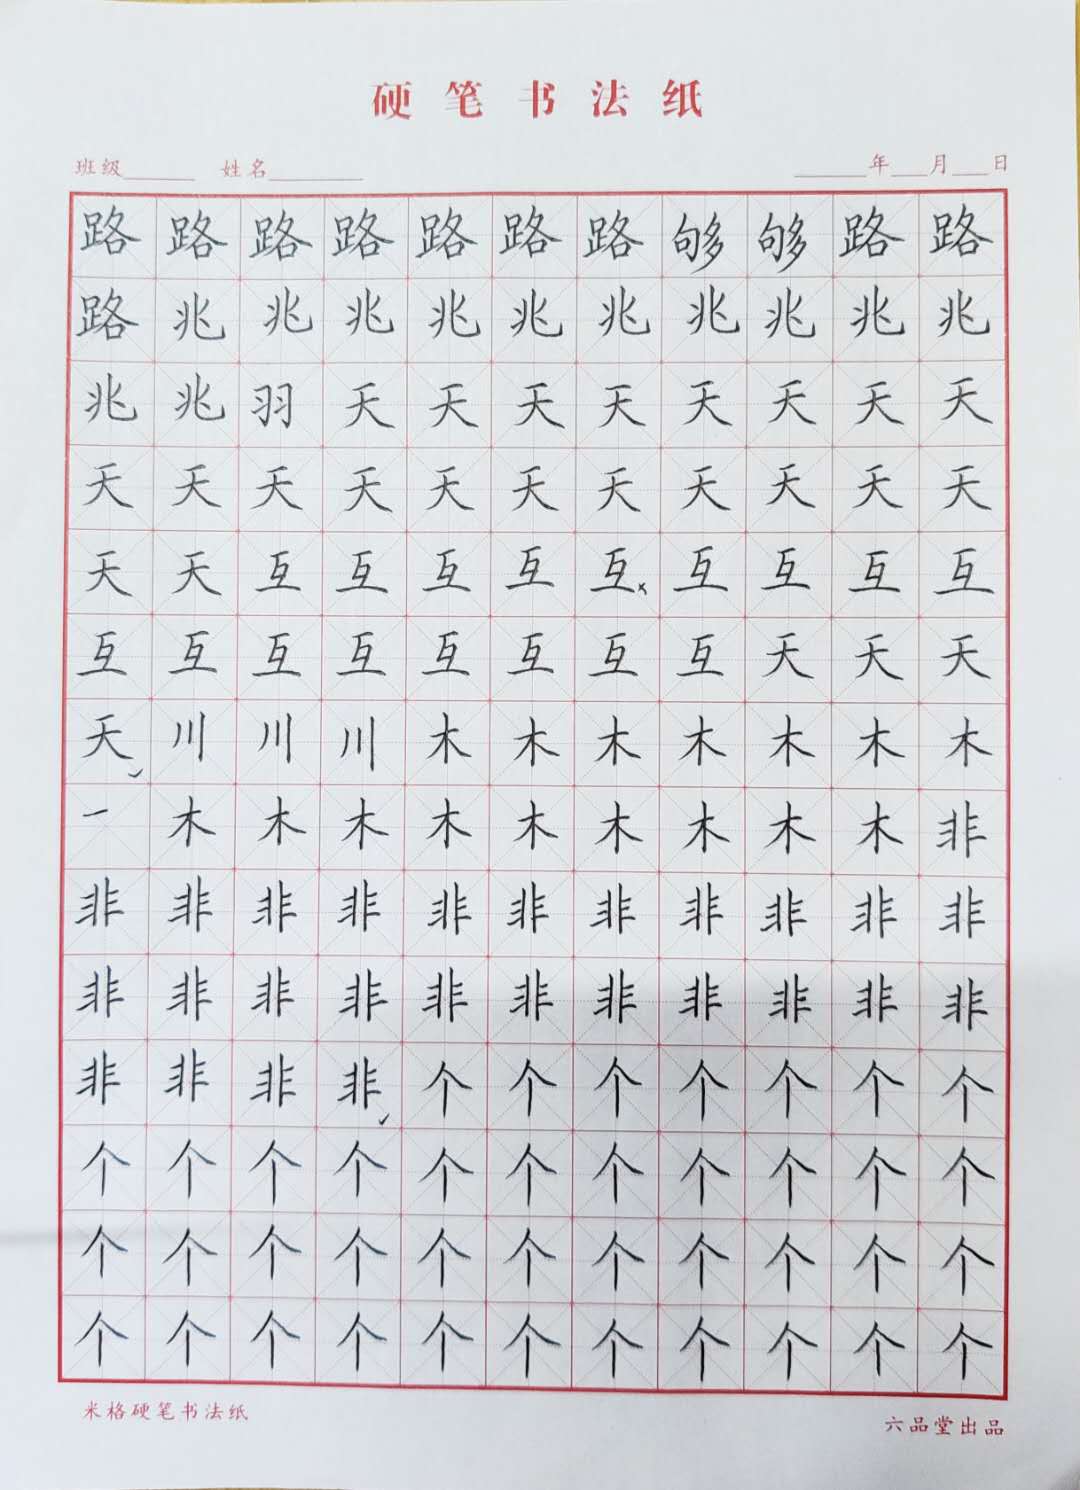 硬笔书法纸
班级 姓名 年 月 日
路路路路路路路够够路路
路兆兆兆兆兆兆兆兆兆兆
兆兆羽天天天天天天天天
天天天天天天天天天天天
天天互互互互互互互互互
互互互互互互互互天天天
天川川川木木木木木木木
一木木木木木木木木木非
非非非非非非非非非非非
非非非非非非非非非非非
非非非非个个个个个个个
个个个个个个个个个个个
个个个个个个个个个个个
个个个个个个个个个个个
米格硬笔书法纸 六品堂出品